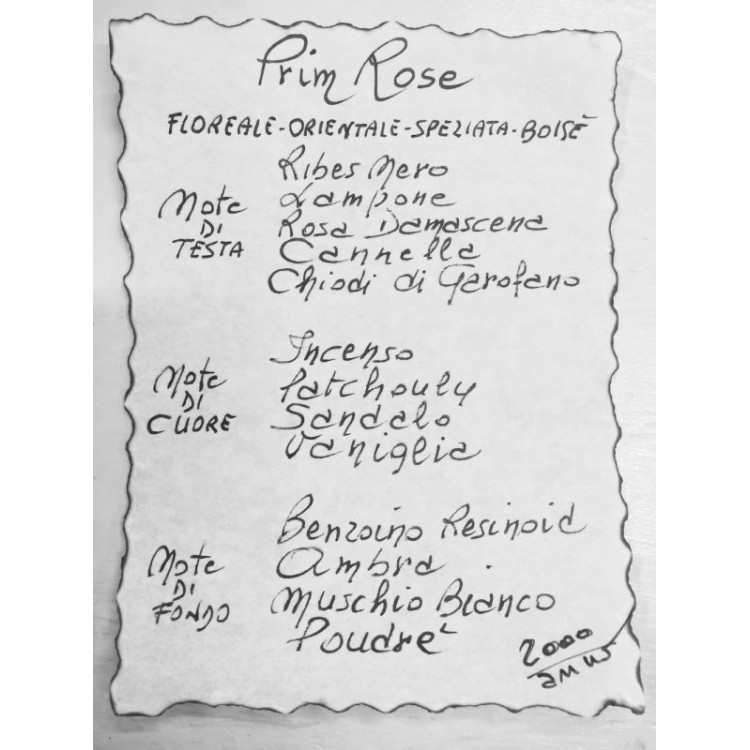 Prim Rose
FLOREALE-ORIENTALE-SPEZIATA-BOISÈ
Note
DI
TESTA
Ribes Nero
Lampone
Rosa Damascena
Cannella
Chiodi di Garofano
Note
DI
CUORE
Incenso
Patchouly
Sandalo
Vaniglia
Note
DI
FONDO
Benzoino Resinoid
Ambra
Muschio Bianco
Poudrè
2000